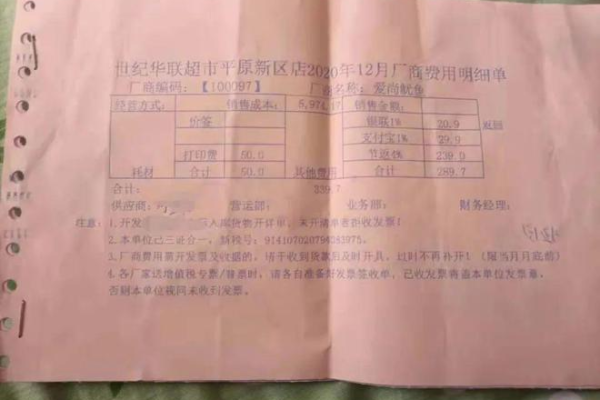 世纪华联超市平原新区店2020年12月厂商费用明细单
厂商编码：【100097】 厂商名称：爱尚鱿鱼
经营方式： 销售成本： 5,974.17 销售金额：
价签 银联1% 20.9 返回
支付宝1% 29.9
打印费 50.0 节返4% 239.0
耗材 合计 50.0 其他费用 合计 289.7
合计： 339.7
供应商： 营运部： 业务部： 财务经理：
注意： 1.开发 人库货物开详单，未开清单者拒收发票！
2.本单位已三证合一，新税号：
3.厂商费用需开发票及收据的，请于收到货款后及时开具，过期不再补开！（限当月月底前）
4.各厂家送增值税专票/普票时，请各自准备好发票签收单，已收发票将盖本单位发票章，
否则本单位视同未收到发票。